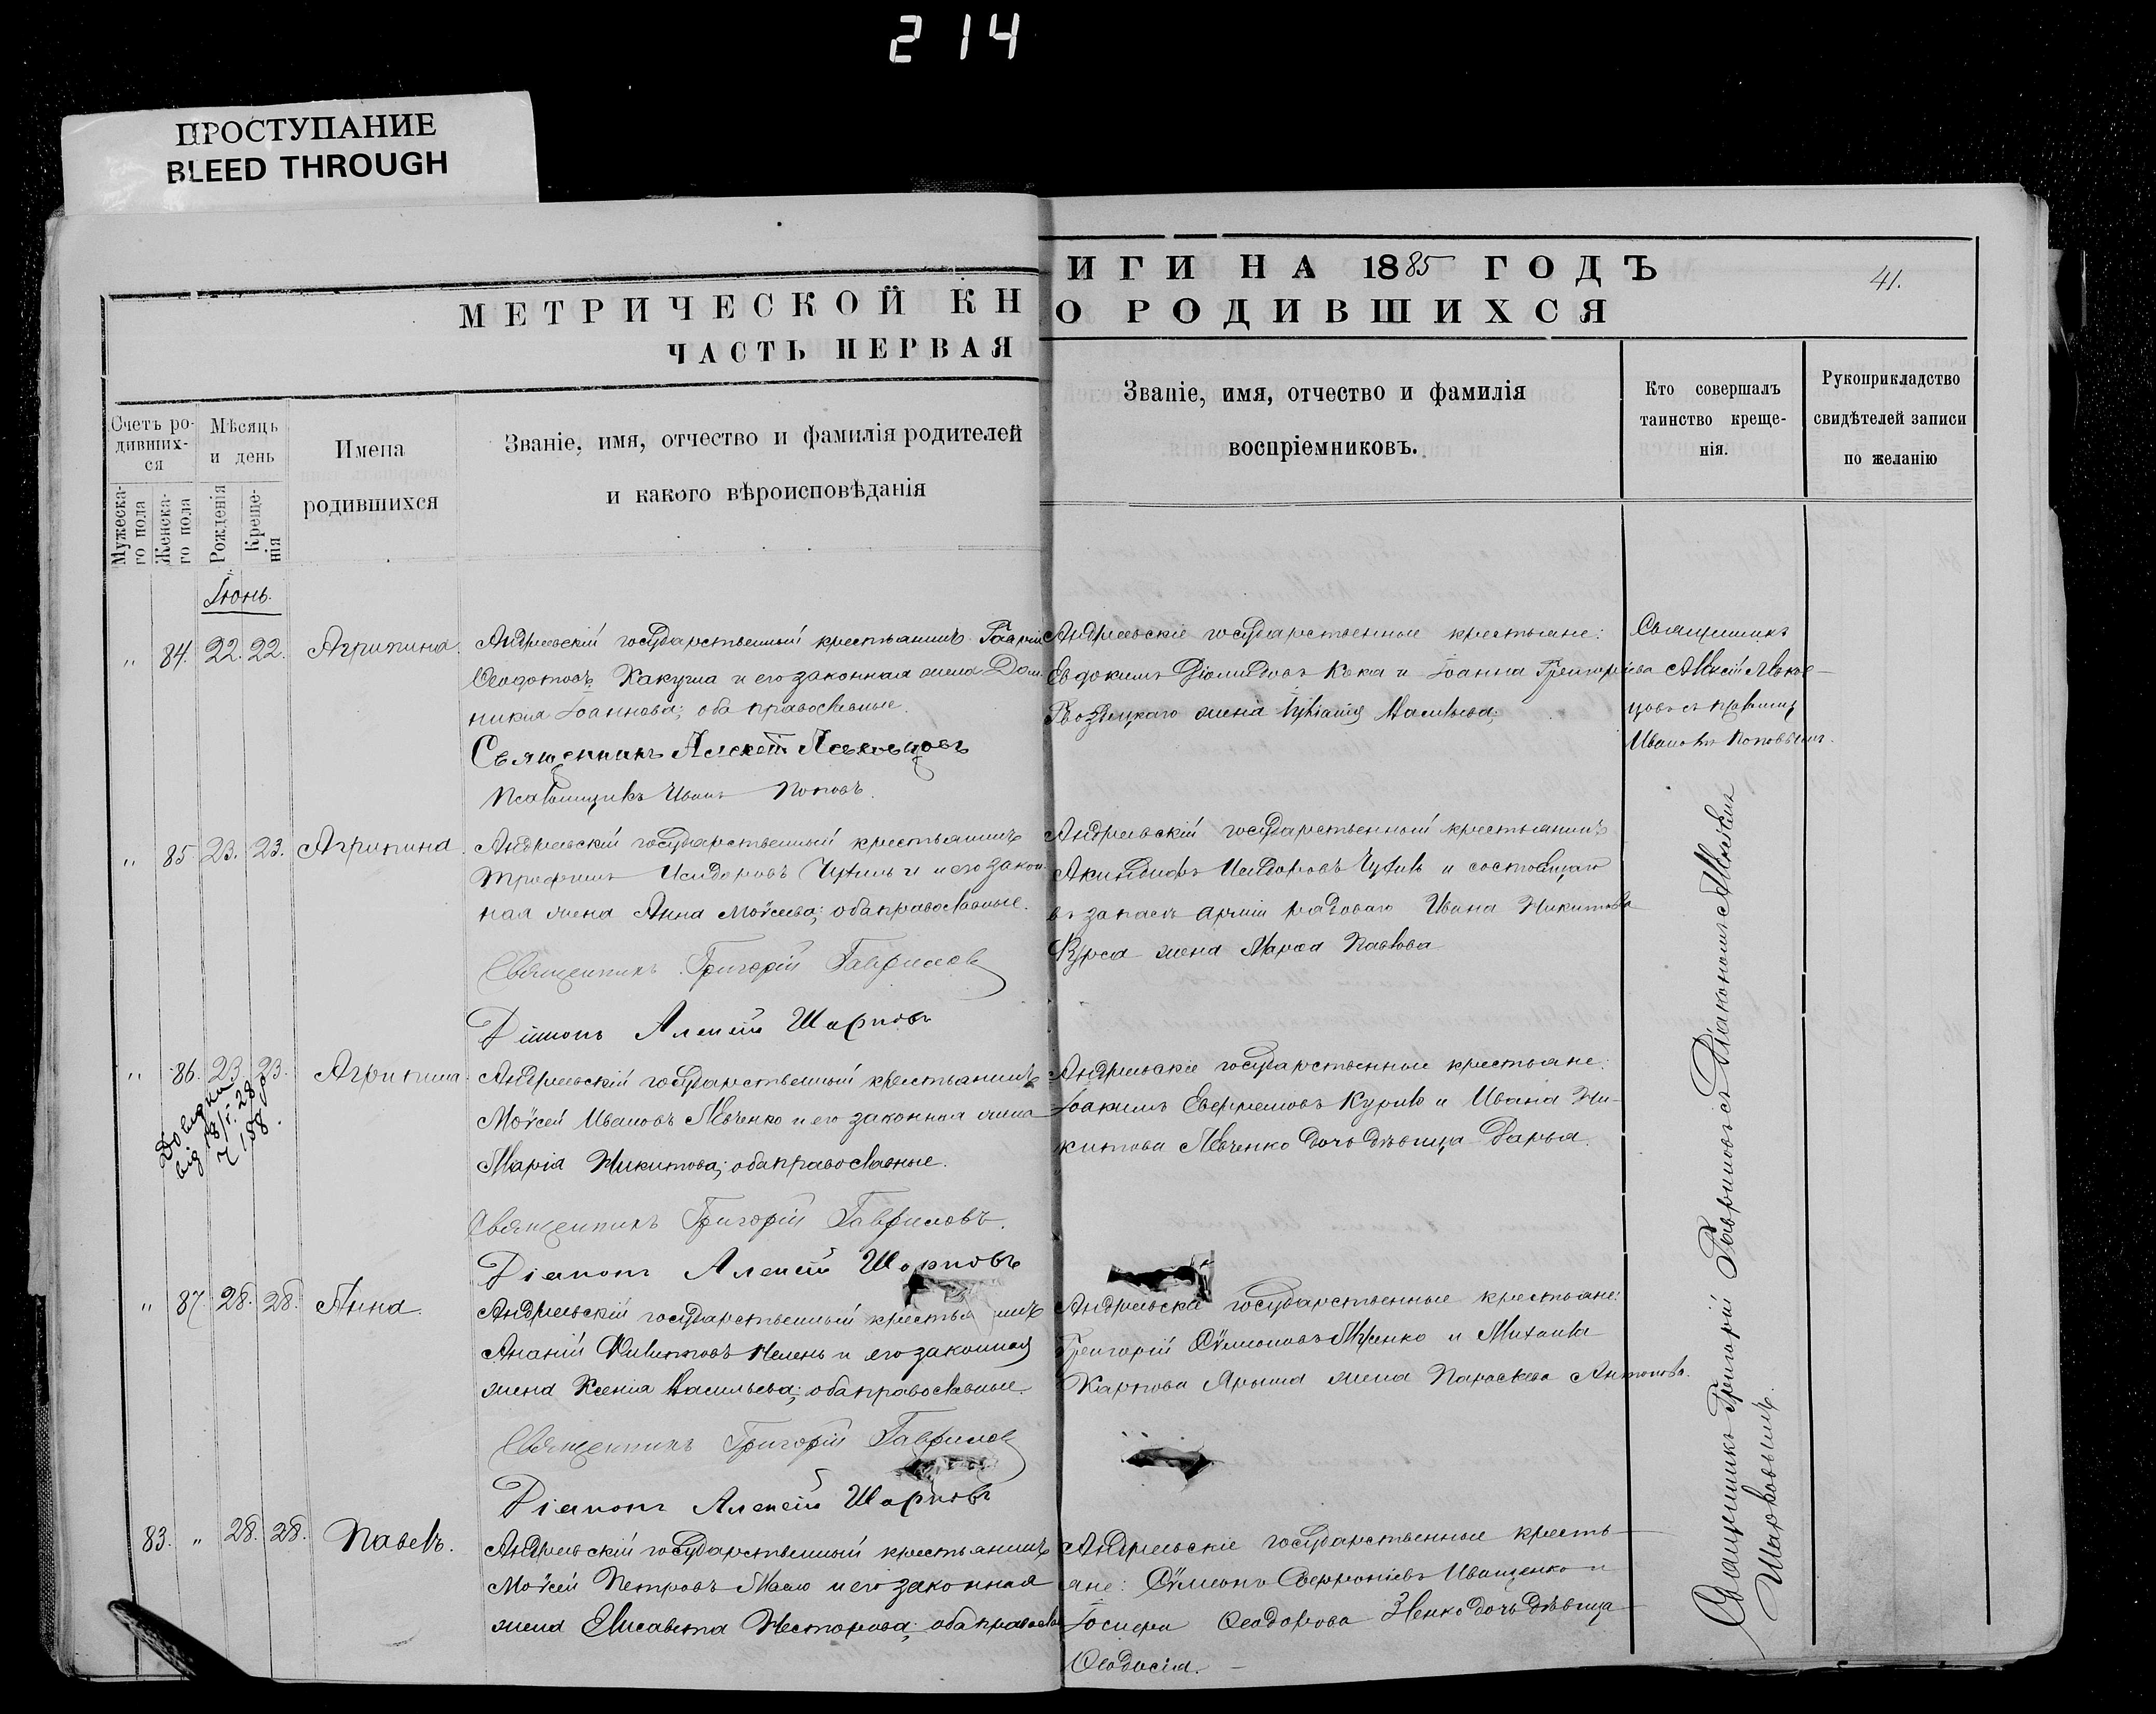 214
ПРОСТУПАНИЕ
BLEED THROUGH
МЕТРИЧЕСКОЙ КН
ИГИ НА 1885 ГОДЪ
41.
ЧАСТЬ ПЕРВАЯ
О РОДИВШИХСЯ
Счетъ ро-
дивших-
ся
Мужеска-
го пола
Женска-
го пола
Мѣсяцъ
и день
Рожденія
Креще-
нія
Имена
родившихся
Званіе, имя, отчество и фамилія родителей
и какого вѣроисповѣданія
Званіе, имя, отчество и фамилія
воспріемниковъ.
Кто совершалъ
таинство креще-
нія.
Рукоприкладство
свидѣтелей записи
по желанію
Іюнь.
„ 84. 22. 22. Агрипина.
Андреевскій государственный крестьянинъ
Ѳеодотовъ Какуша и его законная жена Дом
никія Іоаннова; оба православные.
Священникъ Алексѣй
Псаломщикъ Иванъ Поповъ.
Андреевскіе государственные крестьяне:
Евдокимъ и Іоанна Григоріева
жена Васильева.
Священникъ
Алексѣй
Иваномъ Поповымъ.
„ 85. 23. 23. Агрипина.
Андреевскій государственный крестьянинъ
Трофимъ Исидоровъ и его закон
ная жена Анна Моѵсеева; оба православные.
Священникъ Григорій Гавриловъ
Діаконъ Алексѣй Шарповъ
Андреевскій государственный крестьянинъ
Исидоровъ и состоящаго
въ запасѣ арміи рядоваго Ивана Никитова
жена Марѳа Павлова
„ 86. 23. 23. Агрипина.
Довідка
від 18/I. 28
Андреевскій государственный крестьянинъ
Моѵсей Ивановъ Левченко и его законная жена
Марія Никитова; оба православные.
Священникъ Григорій Гавриловъ.
Діаконъ Алексѣй Шарповъ
Андреевскіе государственные крестьяне:
Іоакимъ Евфремовъ Курило и Ивана Ни-
китова Левченко дочь дѣвица Дарья.
„ 87. 28. 28. Анна.
Андреевскій государственный крестья нинъ
Ананій Филиповъ и его законная
жена Ксенія Васильева; оба православные
Священникъ Григорій Гавриловъ
Діаконъ Алексѣй Шарповъ
Андреевскіе государственные крестьяне:
Григорій Сѵмеоновъ и Михаила
Карпова жена Параскева Антонова.
83. „ 28. 28. Павелъ.
Андреевскій государственный крестьянинъ
Моѵсей Петровъ Масло и его законная
жена Елисавета Несторова; оба правосла
Андреевскіе государственные кресть-
яне: Сѵмеонъ Софроніевъ Иващенко и
Іосифа Ѳеодорова дочь дѣвица
Ѳеодосія.
Священникъ Григорій Гавриловъ съ Діакономъ Алексѣемъ
Шарповымъ.